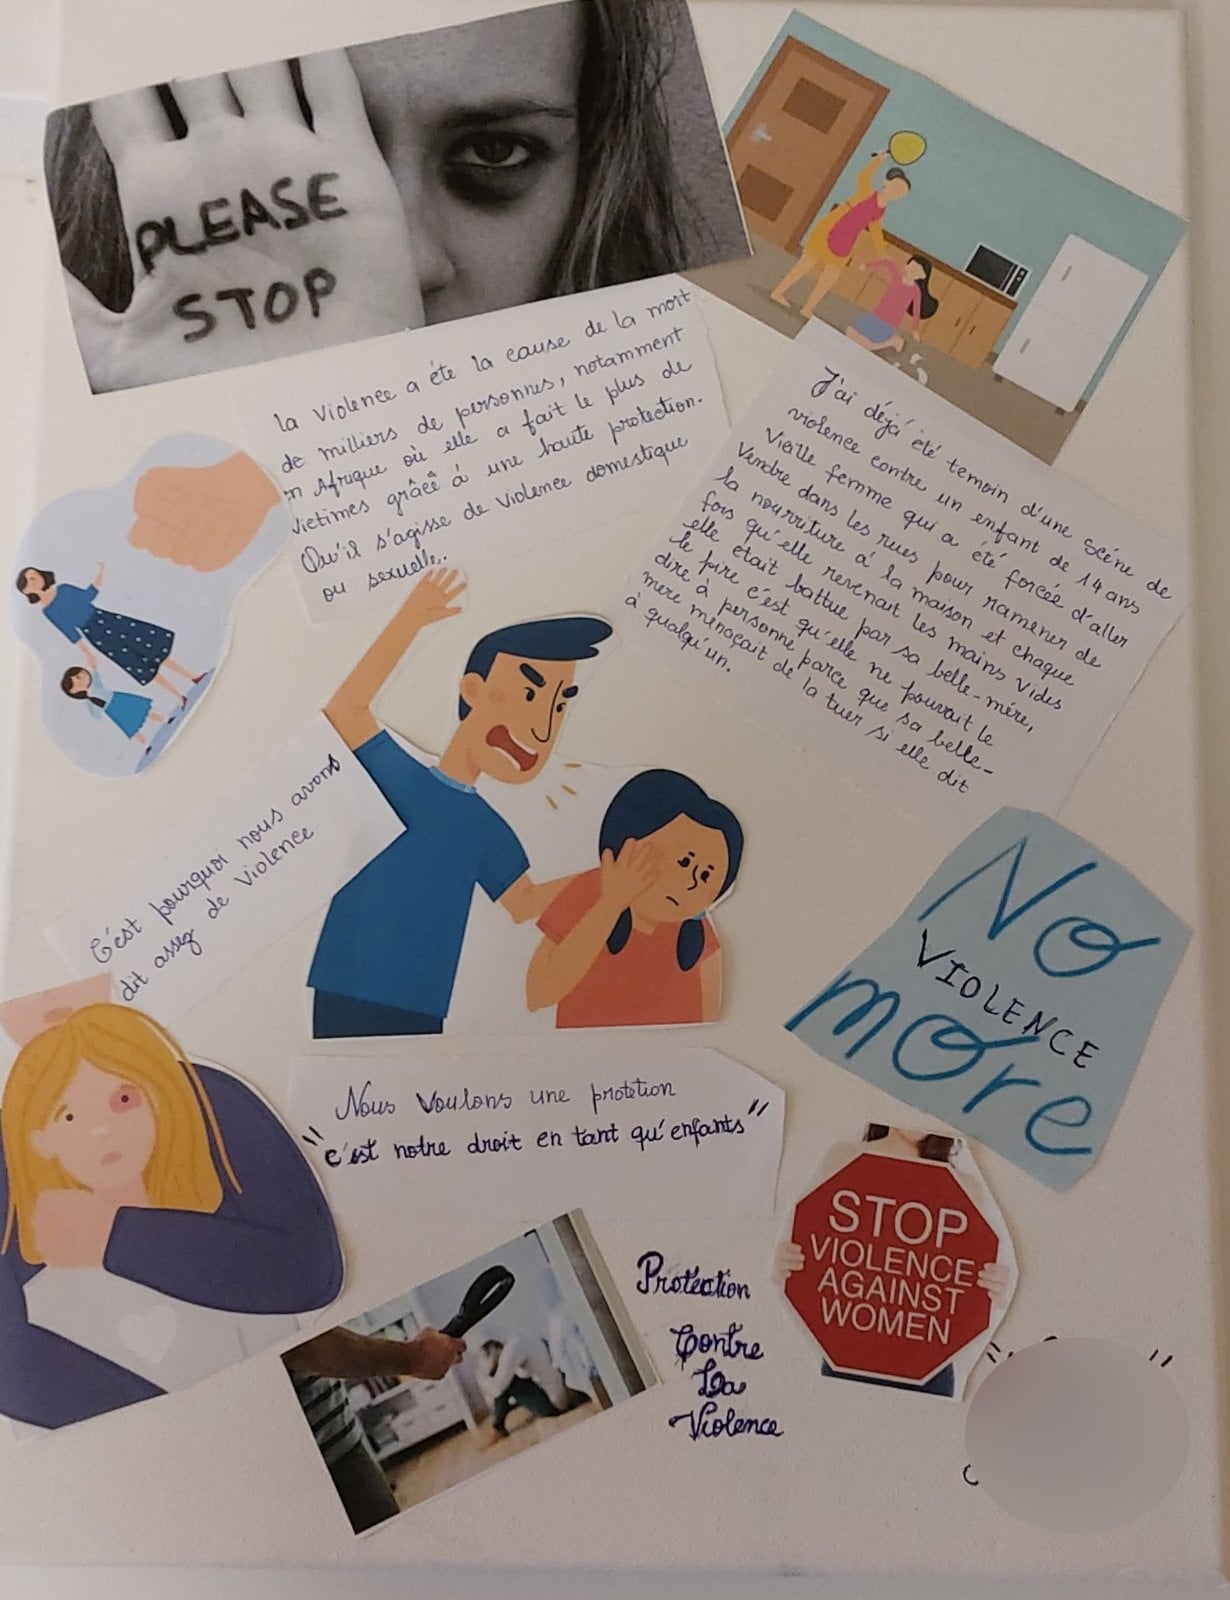 PLEASE
STOP
la violence a éte la cause de la mort
de milliers de personnes, notamment
en Afrique où elle a fait le plus de
victimes grâcê à une haute protection.
Qu'il s'agisse de violence domestique
ou sexuelle..
J'ai déjà été temoin d'une scéne de
violence contre un enfant de 14 ans
Vieille femme qui a été forcée d'aller
Vendre dans les rues pour ramener de
la nourriture à la maison et chaque
fois qu'elle revenait les mains vides
elle était battue par sa belle-mére,
le pire c'est qu'elle ne pouvait le
dire à personne parce que sa belle-
mere menaçait de la tuer si elle dit
à qualqu'un.
C'est pourquoi nous avons
dit assez de violence
No
VIOLENCE
more
Nous Voulons une protetion
"c'est notre droit en tant qu'enfants"
STOP
VIOLENCE
AGAINST
WOMEN
Protection
Contre
La
Violence